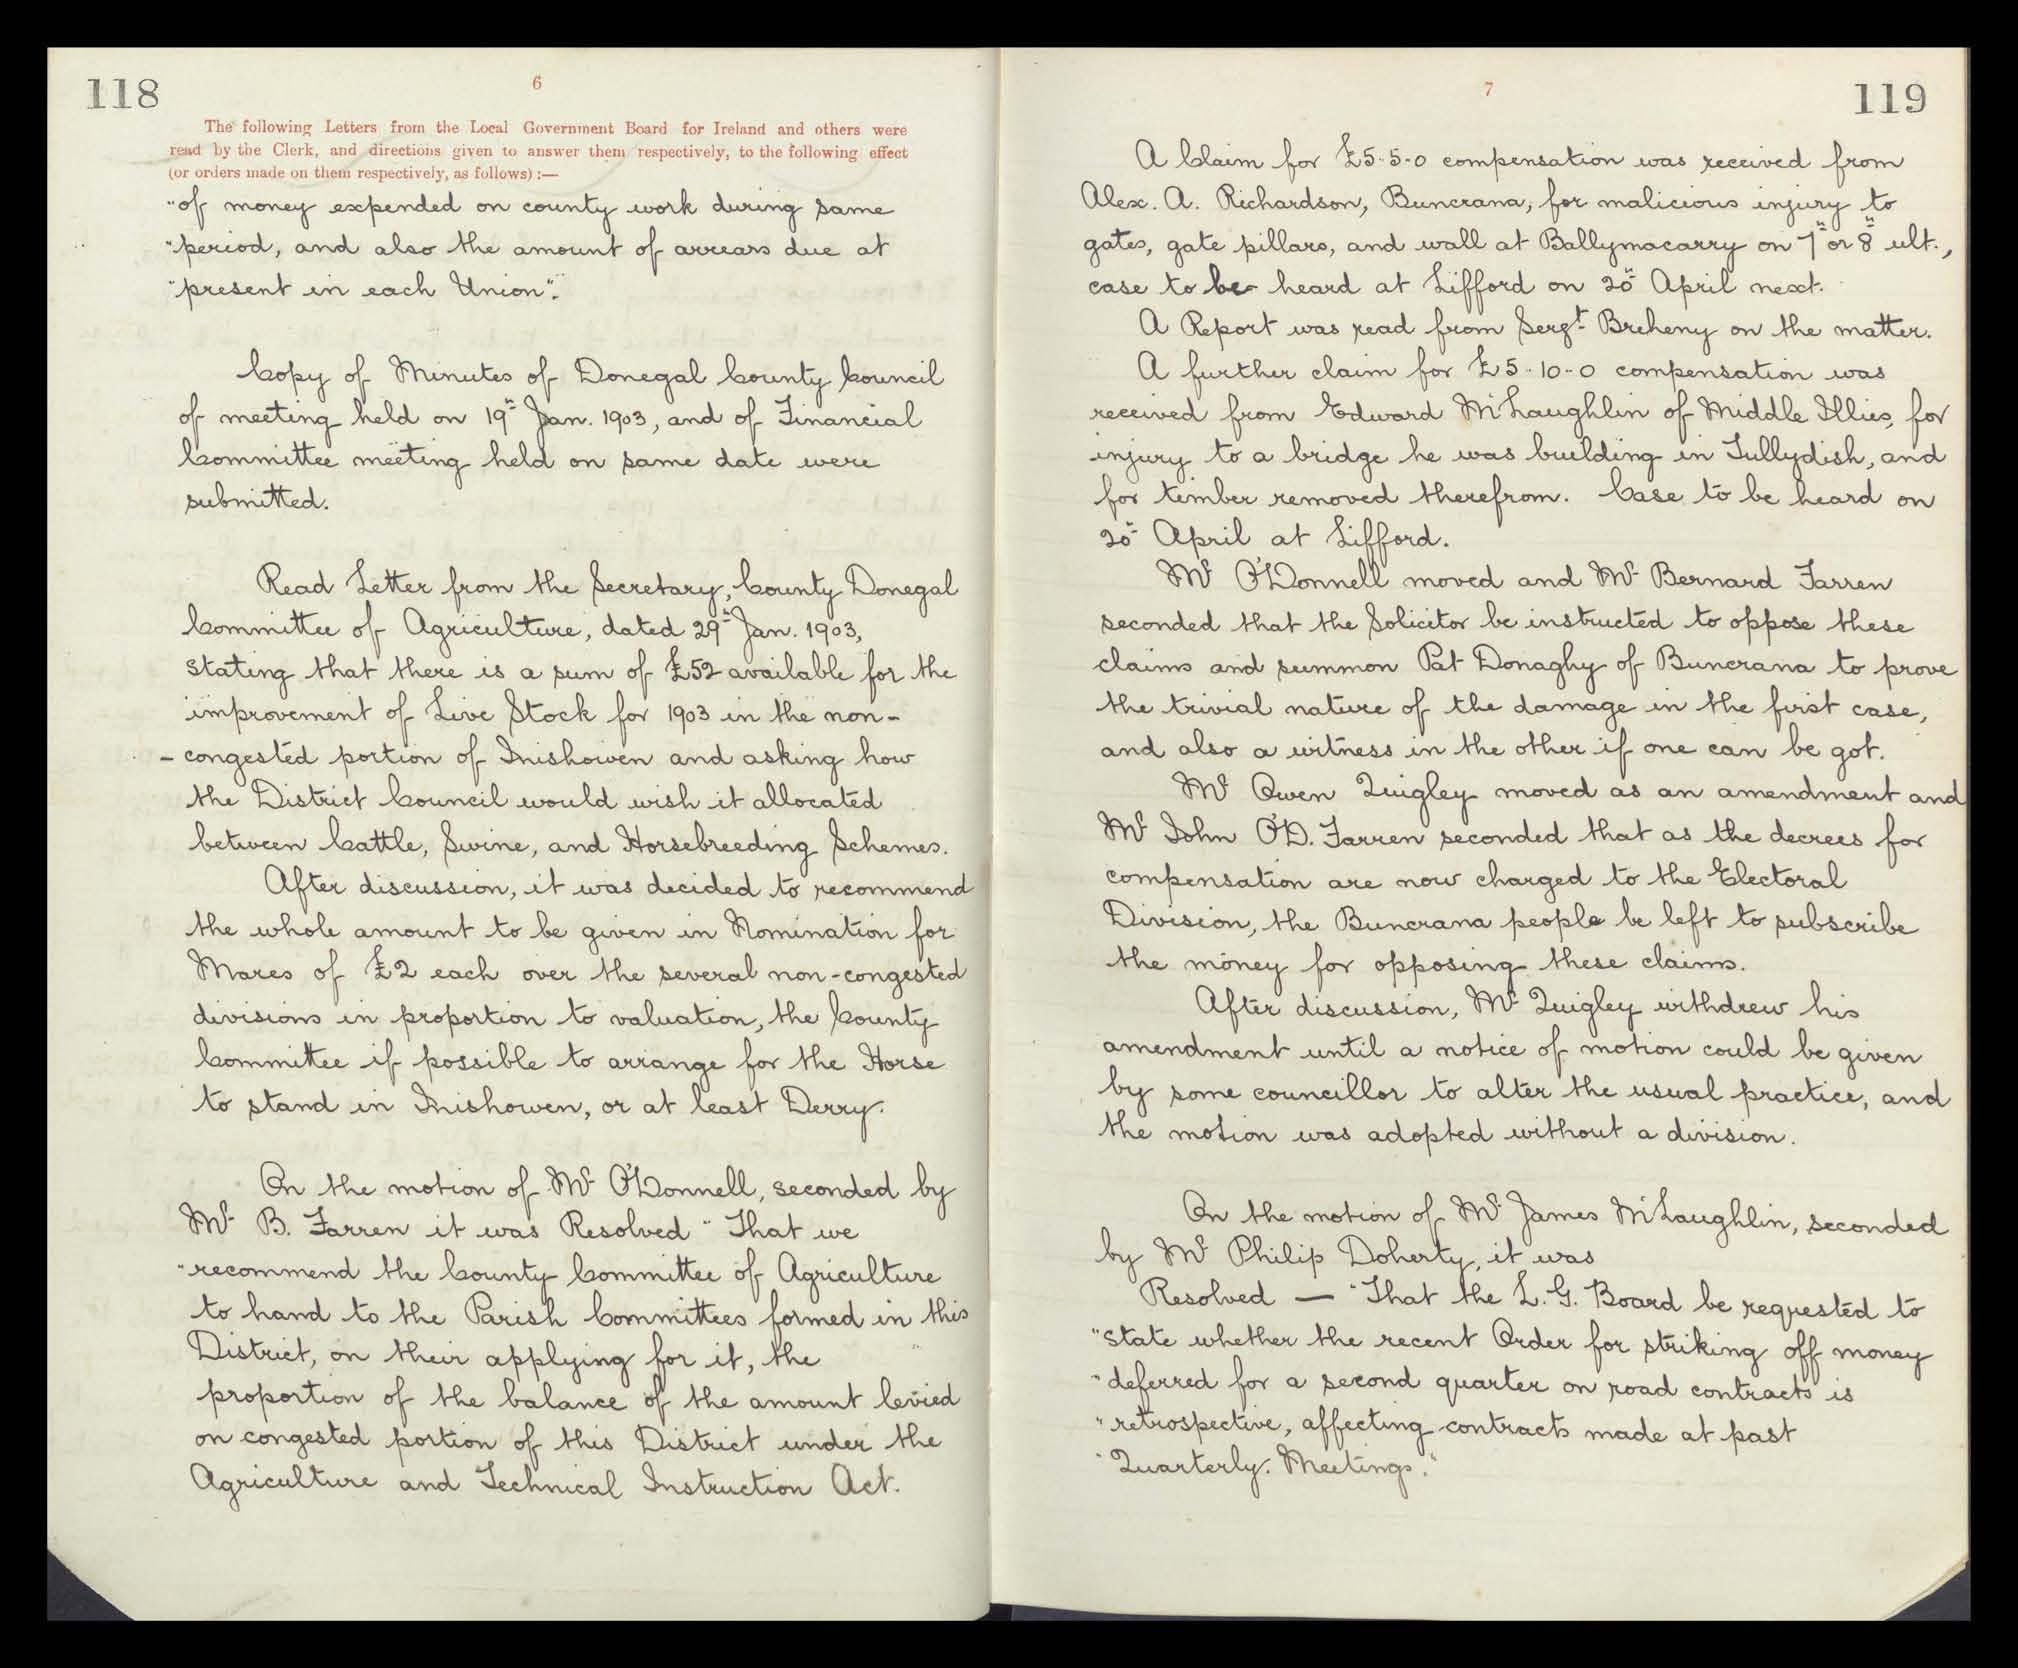 118
6
The following Letters from the Local Government Board for Ireland and others were
read by the Clerk, and directions given to answer them respectively, to the following effect
(or orders made on them respectively, as follows) :—
"of money expended on county work during same
"period, and also the amount of arrears due at
"present in each Union".
Copy of Minutes of Donegal County Council
of meeting held on 19th Jan. 1903, and of Financial
Committee meeting held on same date were
submitted.
Read Letter from the Secretary, County Donegal
Committee of Agriculture, dated 29th Jan. 1903,
stating that there is a sum of £52 available for the
improvement of Live Stock for 1903 in the non-
- congested portion of Inishowen and asking how
the District Council would wish it allocated
between Cattle, Swine, and Horsebreeding Schemes.
After discussion, it was decided to recommend
the whole amount to be given in Nomination for
Mares of £2 each over the several non-congested
divisions in proportion to valuation, the County
Committee if possible to arrange for the Horse
to stand in Inishowen, or at least Derry.
On the motion of Mr O'Donnell, seconded by
Mr B. Farren it was Resolved "That we
"recommend the County Committee of Agriculture
to hand to the Parish Committees formed in this
District, on their applying for it, the
proportion of the balance of the amount levied
on congested portion of this District under the
Agriculture and Technical Instruction Act.
7
119
A Claim for £5-5-0 compensation was received from
Alex. A. Richardson, Buncrana, for malicious injury to
gates, gate pillars, and wall at Ballymacarry on 7th or 8th ult.,
case to be heard at Lifford on 20th April next.
A Report was read from Sergt Breheny on the matter.
A further claim for £5-10-0 compensation was
received from Edward McLaughlin of Middle Illies, for
injury to a bridge he was building in Tullydish, and
for timber removed therefrom. Case to be heard on
20th April at Lifford.
Mr O'Donnell moved and Mr Bernard Farren
seconded that the Solicitor be instructed to oppose these
claims and summon Pat Donaghy of Buncrana to prove
the trivial nature of the damage in the first case,
and also a witness in the other if one can be got.
Mr Owen Quigley moved as an amendment and
Mr John O'D. Farren seconded that as the decrees for
compensation are now charged to the Electoral
Division, the Buncrana people be left to subscribe
the money for opposing these claims.
After discussion, Mr Quigley withdrew his
amendment until a notice of motion could be given
by some councillor to alter the usual practice, and
the motion was adopted without a division.
On the motion of Mr James McLaughlin, seconded
by Mr Philip Doherty, it was
Resolved — "That the L. G. Board be requested to
"state whether the recent Order for striking off money
"deferred for a second quarter on road contracts is
"retrospective, affecting contracts made at past
"Quarterly Meetings."